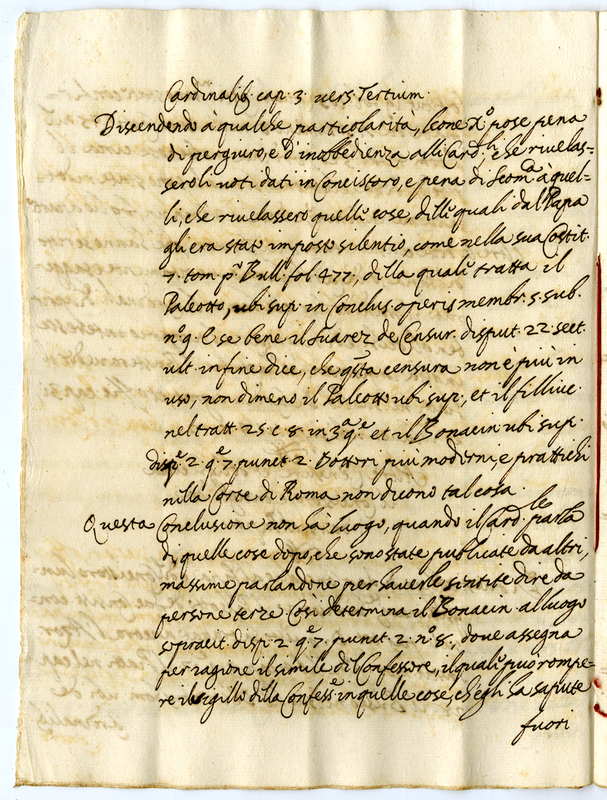 Cardinalib. cap. 3. vers. Tertium.
Discendendo à qualche particolarità, Leone Xº pose pena
di pergiuro, e d'inobbedienza alli Card.li che rivelas=
sero li voti dati in Concistoro, e pena di Scom.ca à quel=
li, che rivelassero quelle cose, delle quali dal Papa
gli era stato imposto silentio, come nella sua Costit.
7. tom. pº Bull. fol. 477, della quale tratta il
Paleotto, ubi sup. in Conclus. operis membr. 5. sub.
nº 9. E se bene il Suarez de Censur. disput. 22 sect.
ult. in fine dice, che qsta censura non è più in
uso, non dimeno il Paleotto ubi sup., et il filliuc.
nel tratt. 25. c. 8. in 3ª q.e et il Bonacin. ubi sup.
disp. 2. q.e 7. punct. 2. Dottori più moderni, e prattichi
nella Corte di Roma non dicono tal cosa.
Questa Conclusione non hà luogo, quando il Card.le parla
di quelle cose dopo, che sono state publicate da altri,
massime parlandone per haverle sentite dire da
persone terze. Così determina il Bonacin. al luogo
sopracit. disp. 2. q.e 7. punct. 2. nº 8., dove assegna
per ragione il simile del Confessore, il quale può rompe=
re il sigillo della Confess.e in quelle cose, ch'egli ha sapute
fuori